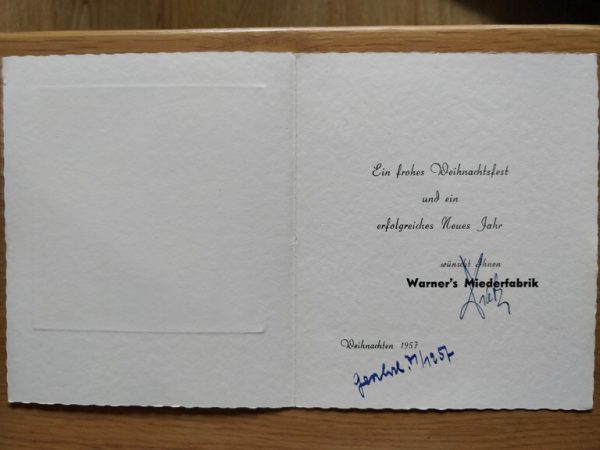 Ein frohes Weihnachtsfest
und ein
erfolgreiches Neues Jahr
wünscht Ihnen
Warner's Miederfabrik
Weihnachten 1957
/1957